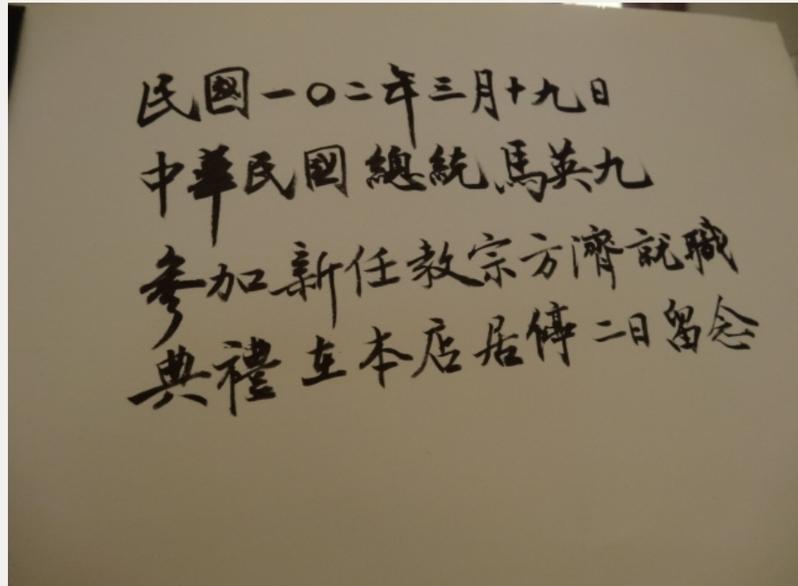 民國一〇二年三月十九日
中華民國總統馬英九
參加新任教宗方濟就職
典禮在本店居停二日留念